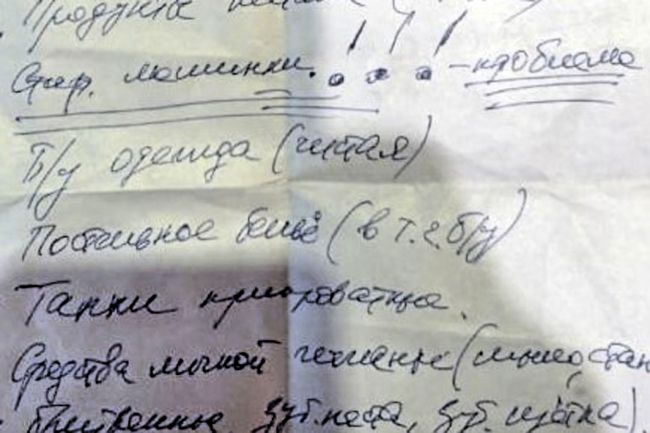 Продукты
Стир. машинки. !!! - проблема
Б/у одежда (чистая)
Постельное бельё (в т.ч. б/у)
Тапки прикроватные.
Средства личной гигиены (мыло, стан
бритвенные, зуб. паста, зуб. щётка).